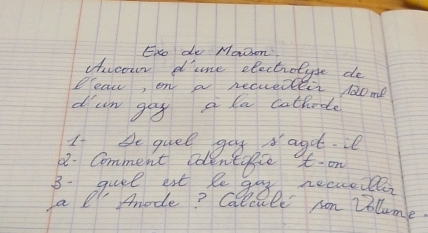 Exo de Maison
Aucour d'une electrolyse de
l'eau, on a recueillir 120 ml
d'un gaz à la cathode
1- De quel gaz s'agit-il
2- Comment identifie t-on
3- quel est le gaz recueillir
a l'Anode ? Calculé son Volume.